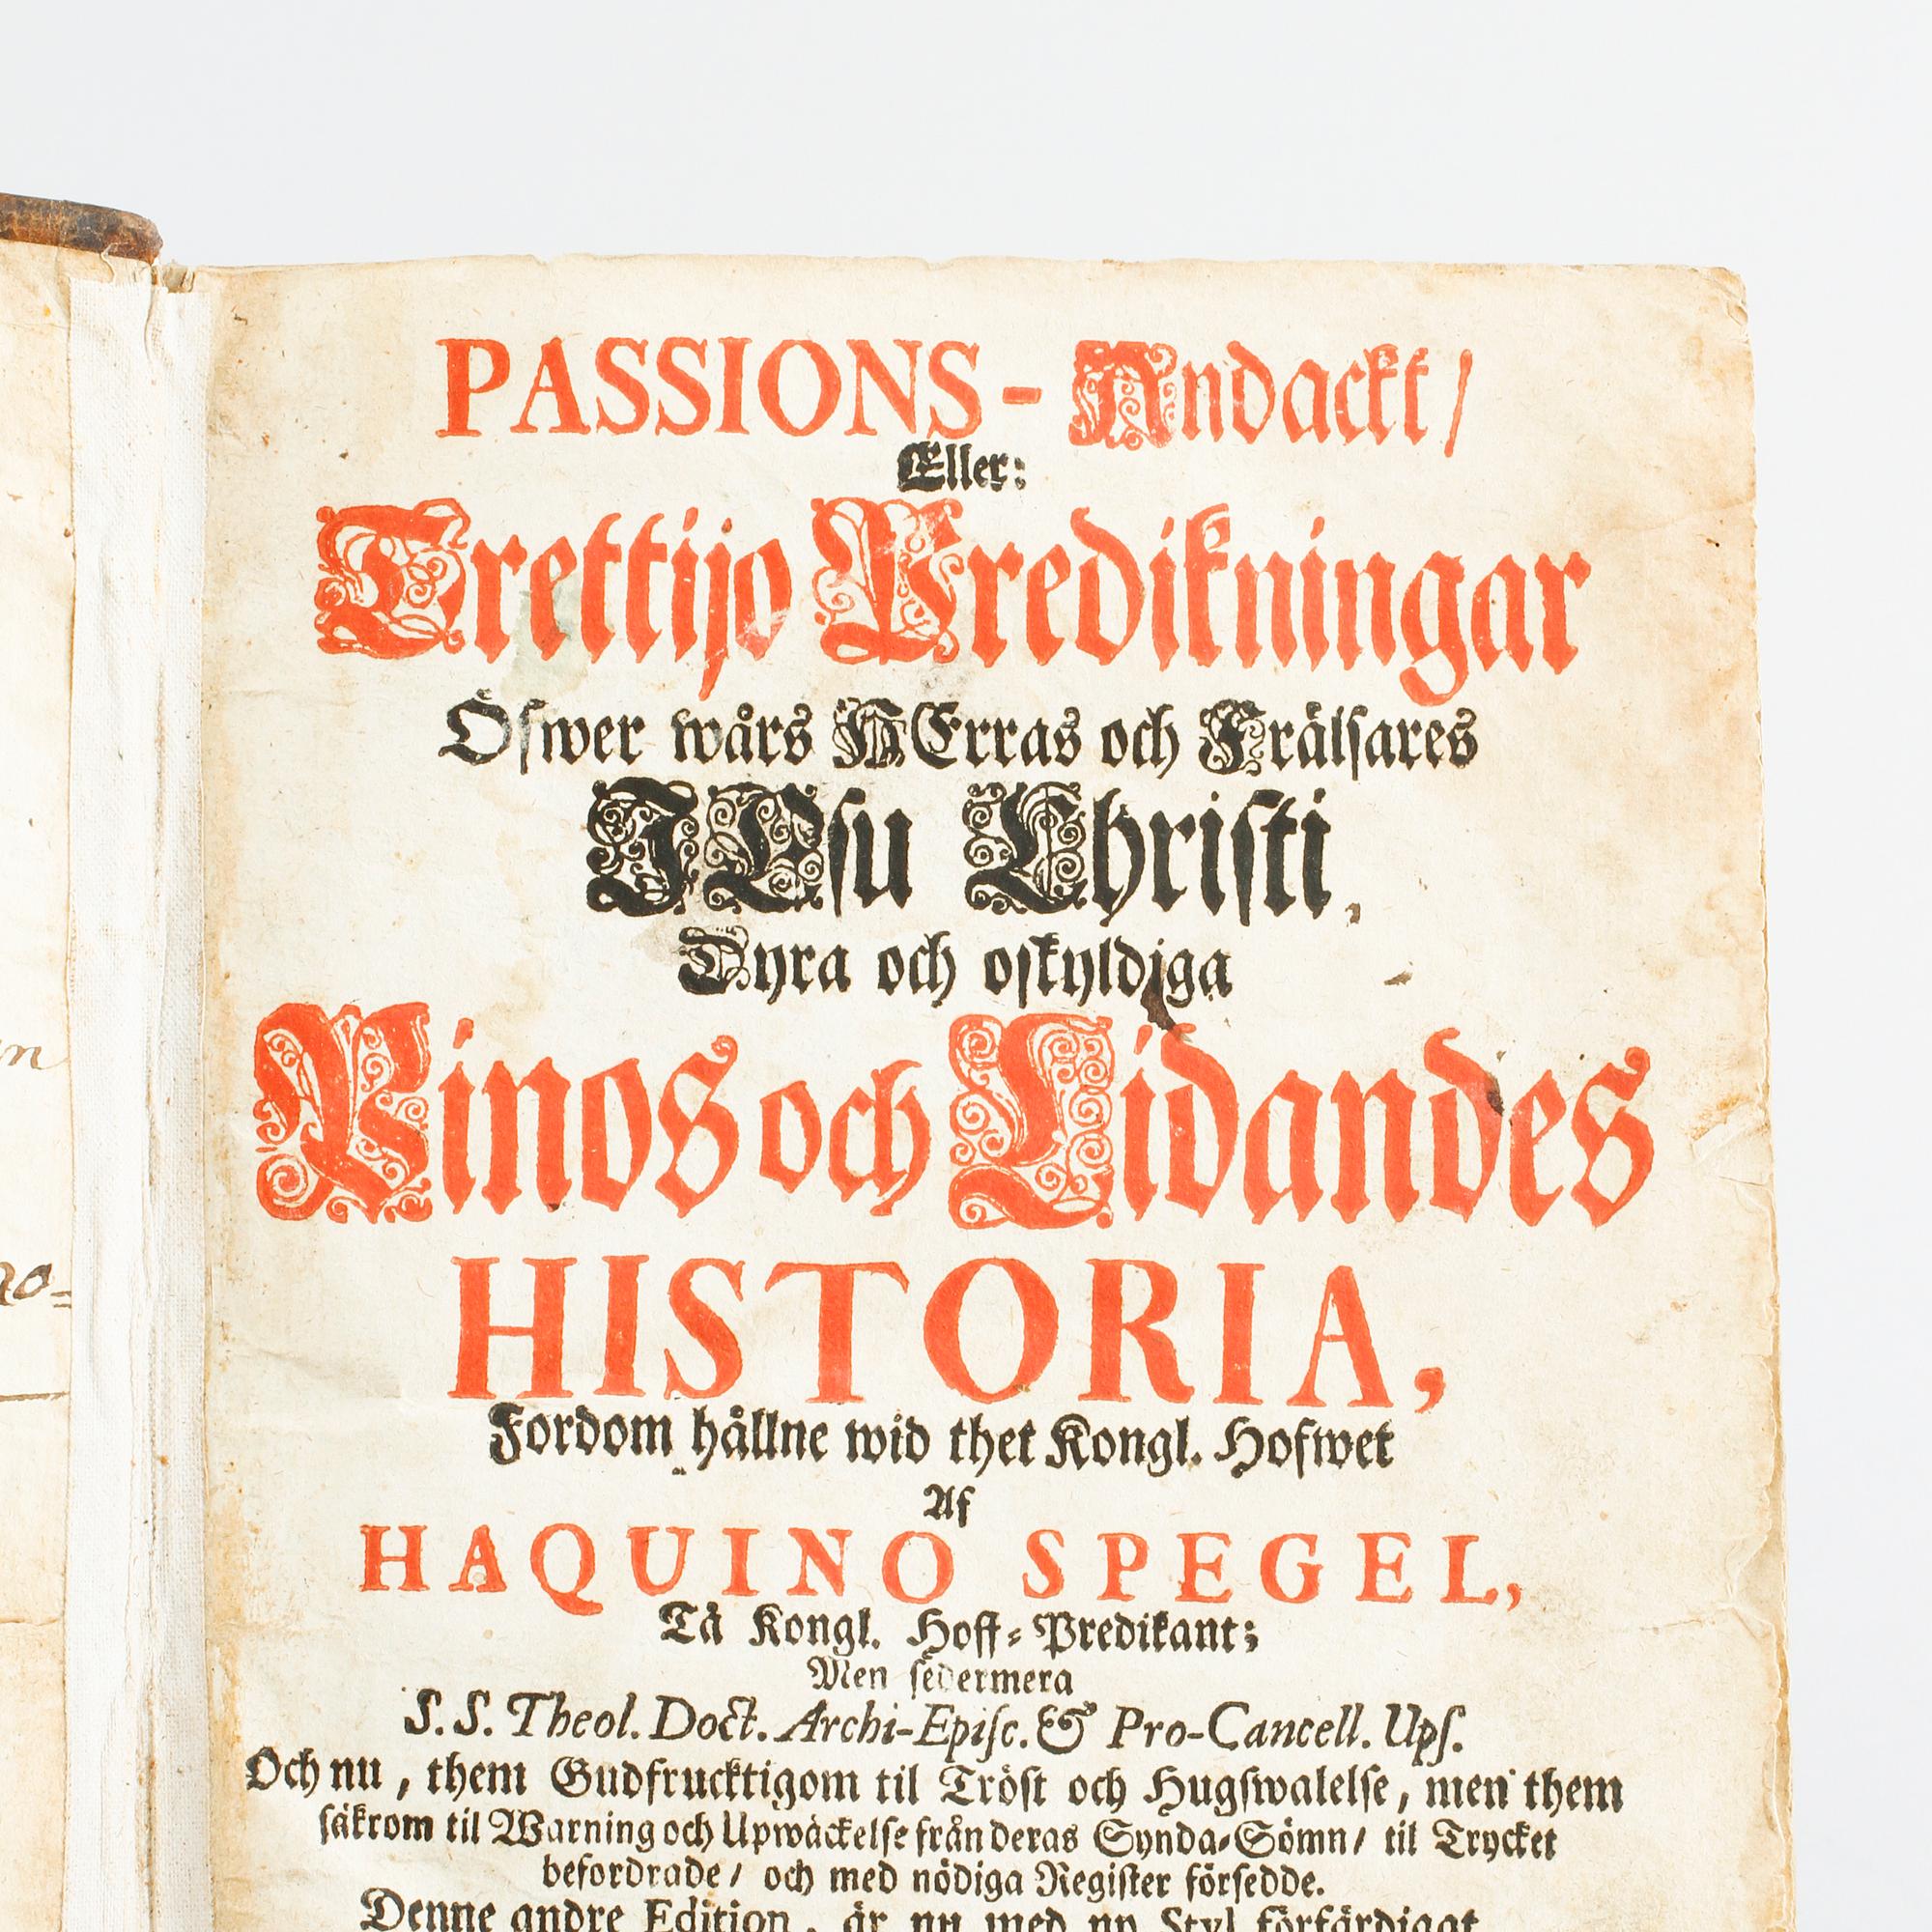 PASSIONS-Andackt/
Eller:
Trettijo Predikningar
Öfwer wårs HErras och Frälsares
JEsu Christi,
Dyra och oskyldiga
Pinos och Lidandes
HISTORIA,
Fordom hållne wid thet Kongl. Hofwet
Af
HAQUINO SPEGEL,
Tå Kongl. Hoff-Predikant;
Men sedermera
S. S. Theol. Doct. Archi-Episc. & Pro-Cancell. Ups.
Och nu, them Gudfrucktigom til Tröst och Hugswalelse, men them
säkrom til Warning och Upwäckelse från deras Synda-Sömn/ til Trycket
befordrade/ och med nödiga Register försedde.
Denne andre Edition, är nu med ny Styl förfärdigat